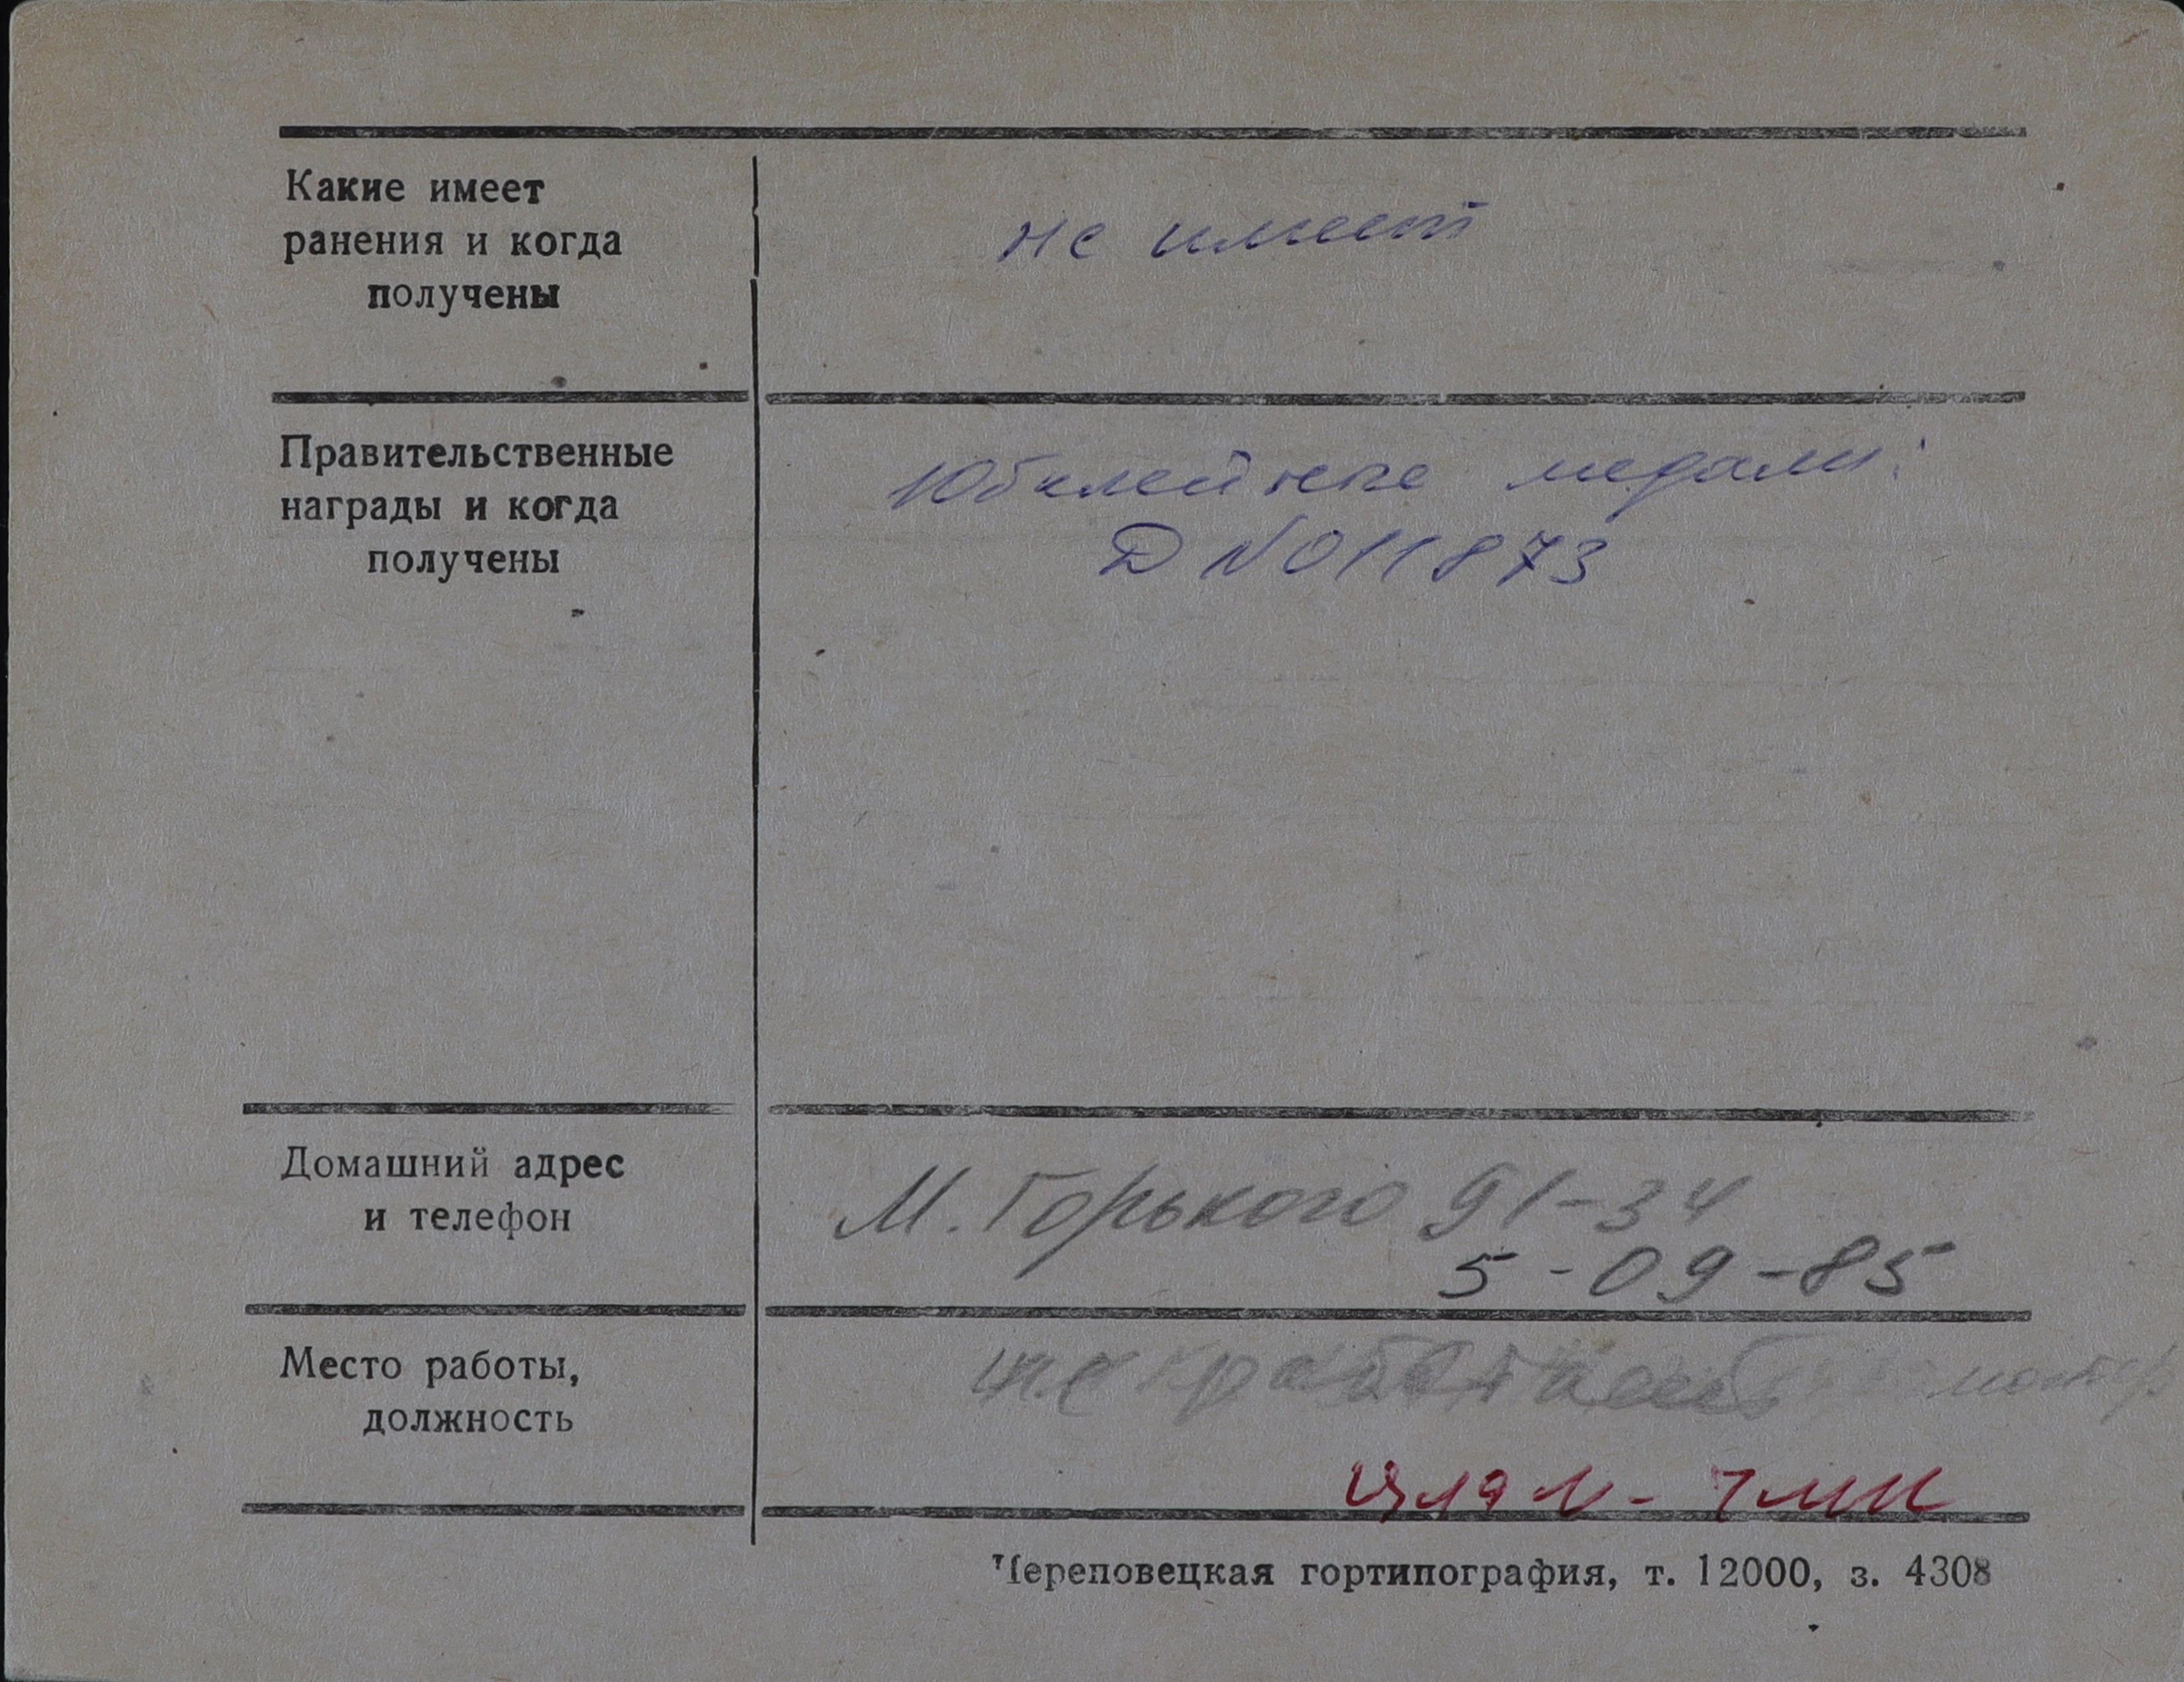 Какие имеет
ранения и когда
получены
не имеет
Правительственные
награды и когда
получены
Юбилейные медали:
Д № 011873
Домашний адрес
и телефон
М. Горького 91-34
5-09-85
Место работы,
должность
не работает
Череповецкая гортипография, т. 12000, з. 4308